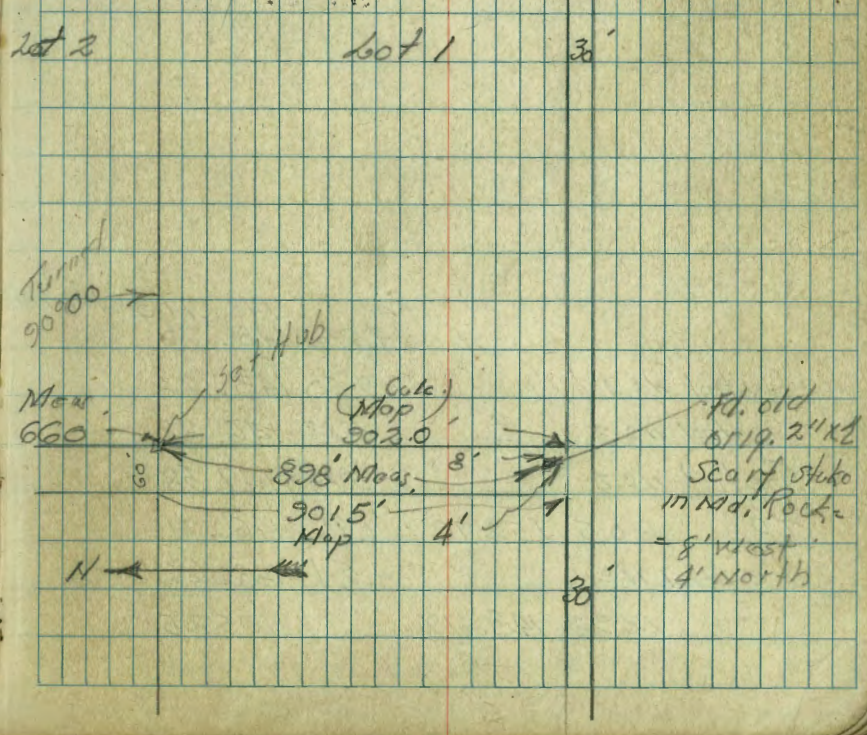 Lot 2 Lot 1 30'
Turned
90°00
Set Hub
Meas
660'
(Calc.
Map)
902.0'
8'
898' Meas.
60'
901.5'
Map
4'
N
30'
Fd. old
orig. 2"x2
Scarf stake
in Md. Rock=
= 8' West
4' North